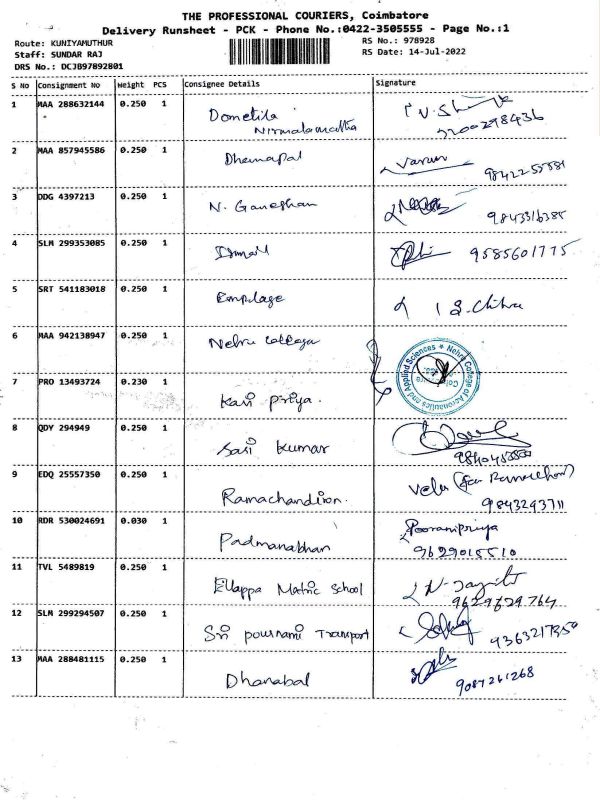 THE PROFESSIONAL COURIERS, Coimbatore
Delivery Runsheet - PCK - Phone No.:0422-3505555 - Page No.:1
Route: KUNIYAMUTHUR
RS No.: 978928
Staff: SUNDAR RAJ
RS Date: 14-Jul-2022
DRS No.: DCJB97892801
S No Consignment No Weight PCS Consignee Details Signature
1 MAA 288632144 0.250 1 Dometila
Nirmalamatha
2 MAA 857945586 0.250 1 Dhanapal Varun
3 DDG 4397213 0.250 1 N. Ganeshan
9843316385
4 SLM 299353085 0.250 1 Ismail 9585601775
5 SRT 541183018 0.250 1 S. Chitra
6 MAA 942138947 0.250 1 Nehru College
Nehru College of Aeronautics and Applied Sciences
7 PRO 13493724 0.230 1 Kavi Priya.
8 QDY 294949 0.250 1 Sasi Kumar
9 EDQ 25557350 0.250 1 Ramachandiron. Velu
9843293711
10 RDR 530024691 0.030 1 Padmanabhan Pooranipriya
9629015510
11 TVL 5489819 0.250 1 Ellappa Matric School
9629629764
12 SLM 299294507 0.250 1 Sri pournami Transport
13 MAA 288481115 0.250 1 Dhanabal
9087261268